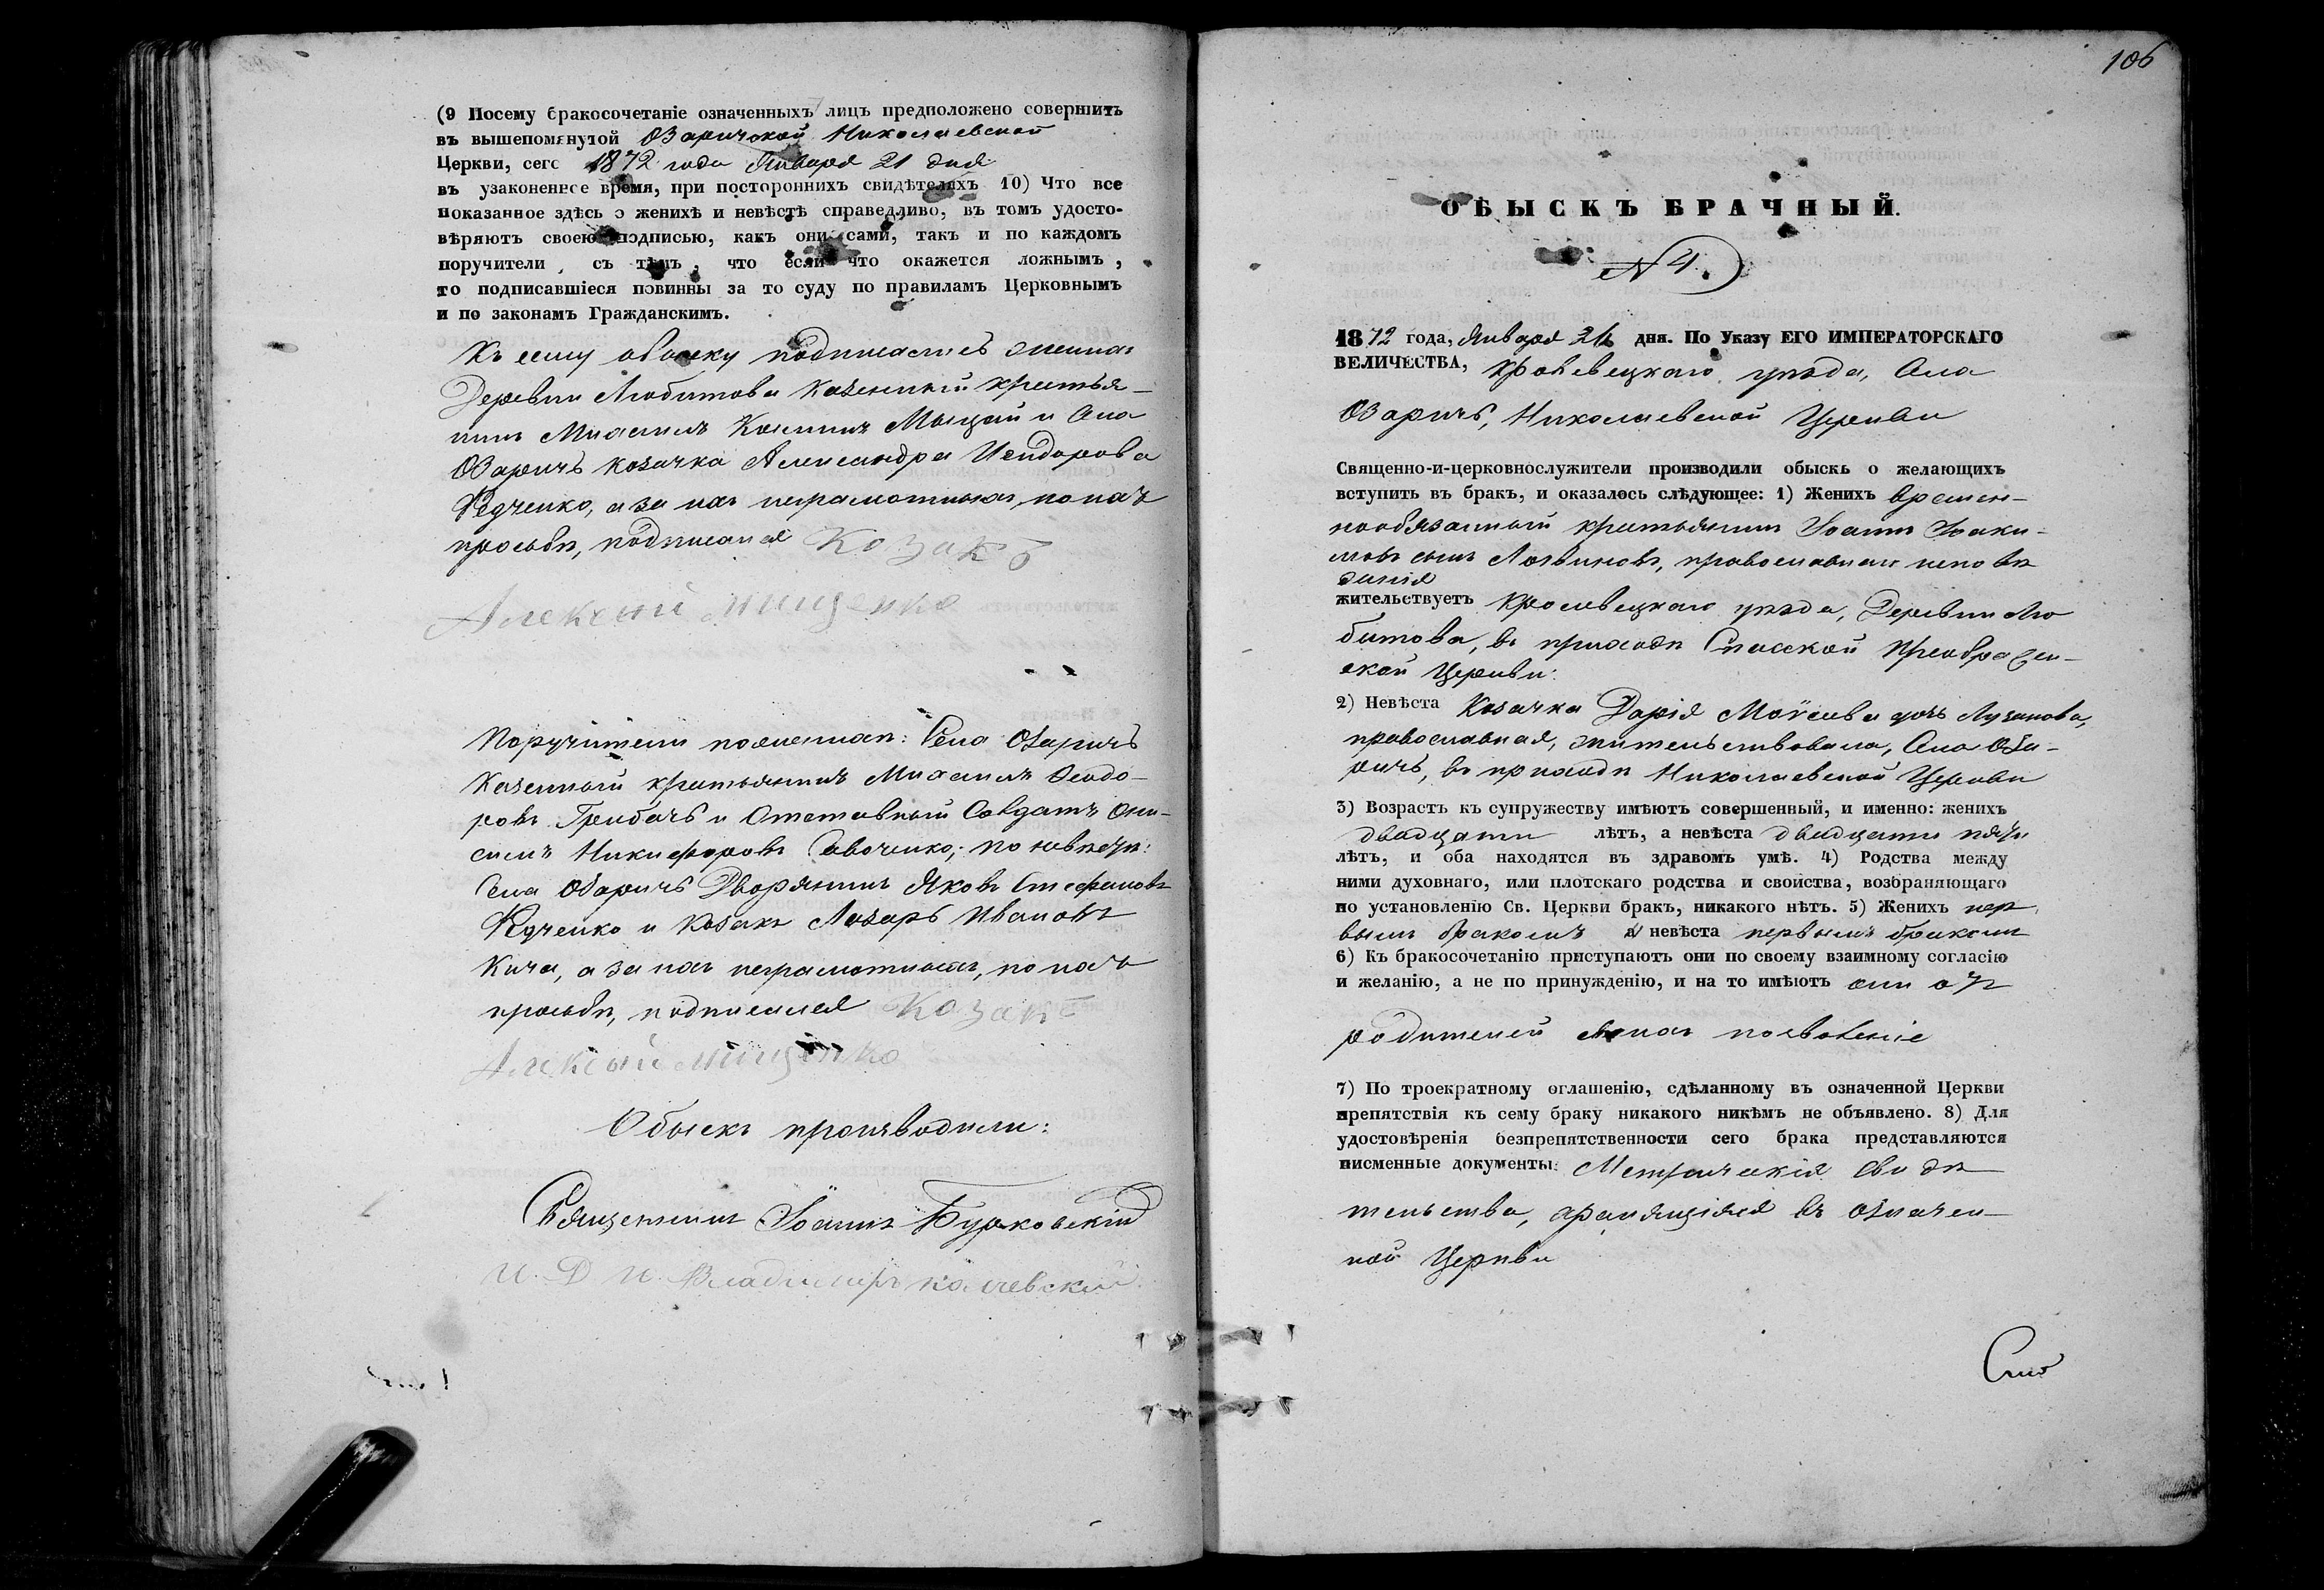 (9 Посему бракосочетаніе означенныхъ лицъ предположено совершить
въ вышепомянутой Озаричской Николаевской
Церкви, сего 1872 года Января 21 дня
въ узаконенное время, при постороннихъ свидѣтеляхъ 10) Что все
показанное здѣсь о женихѣ и невѣстѣ справедливо, въ томъ удосто-
вѣряютъ своею подписью, какъ они сами, такъ и по каждомъ
поручители, съ тѣмъ, что если что окажется ложнымъ,
то подписавшіеся повинны за то суду по правиламъ Церковнымъ
и по законамъ Гражданскимъ.
Къ сему обыску подписались женихъ
Деревни Любитова Казенный крестья-
нинъ Михаилъ Мыцой и Села
Озаричъ козачка Александра Исидорова
Федченко, а за нихъ неграмотныхъ, по ихъ
просьбѣ, подписался Козакъ
Алексей Мищенко
Поручители по женихѣ: Села Озаричъ
Казенный крестьянинъ Михаилъ Ѳеодо-
ровъ Грибачъ и Отставный Солдатъ Они-
симъ Никифоровъ Савоченко; по невѣстѣ:
Села Озаричъ Дворянинъ Яковъ Стефановъ
Федченко и Козакъ Лазарь Ивановъ
Кича, а за нихъ неграмотныхъ, по ихъ
просьбѣ, подписался Козакъ
Алексей Мищенко
Обыскъ производили:
Священникъ Іоаннъ Бурковскій
И. Д. П. Владимиръ
106
ОБЫСКЪ БРАЧНЫЙ.
№ 4.
1872 года, Января 21 дня. По Указу ЕГО ИМПЕРАТОРСКАГО
ВЕЛИЧЕСТВА, Кролевецкаго уѣзда, Села
Озаричъ, Николаевской Церкви
Священно-и-церковнослужители производили обыскъ о желающихъ
вступить въ бракъ, и оказалось слѣдующее: 1) Женихъ времен-
нообязанный крестьянинъ Іоаннъ Іоаки-
мовъ сынъ Логвиновъ, православнаго исповѣ
данія
жительствуетъ Кролевецкаго уѣзда, Деревни Лю
битова, въ приходѣ Спасской Преображен-
ской Церкви.
2) Невѣста Козачка Дарія Моѵсеева дочь Лузанова,
православная, жительствовала, Села Оза-
ричъ, въ приходѣ Николаевской Церкви
3) Возрастъ къ супружеству имѣютъ совершенный, и именно: женихъ
двадцати лѣтъ, а невѣста двадцати пяти
лѣтъ, и оба находятся въ здравомъ умѣ. 4) Родства между
ними духовнаго, или плотскаго родства и свойства, возбраняющаго
по установленію Св. Церкви бракъ, никакого нѣтъ. 5) Женихъ пер
вымъ бракомъ и невѣста первымъ бракомъ
6) Къ бракосочетанію приступаютъ они по своему взаимному согласію
и желанію, а не по принужденію, и на то имѣютъ они отъ
родителей своихъ позволеніе
7) По троекратному оглашенію, сдѣланному въ означенной Церкви
препятствія къ сему браку никакого никѣмъ не объявлено. 8) Для
удостовѣренія безпрепятственности сего брака представляются
писменные документы: Метрическія свидѣ
тельства, хранящіяся въ означен-
ной Церкви